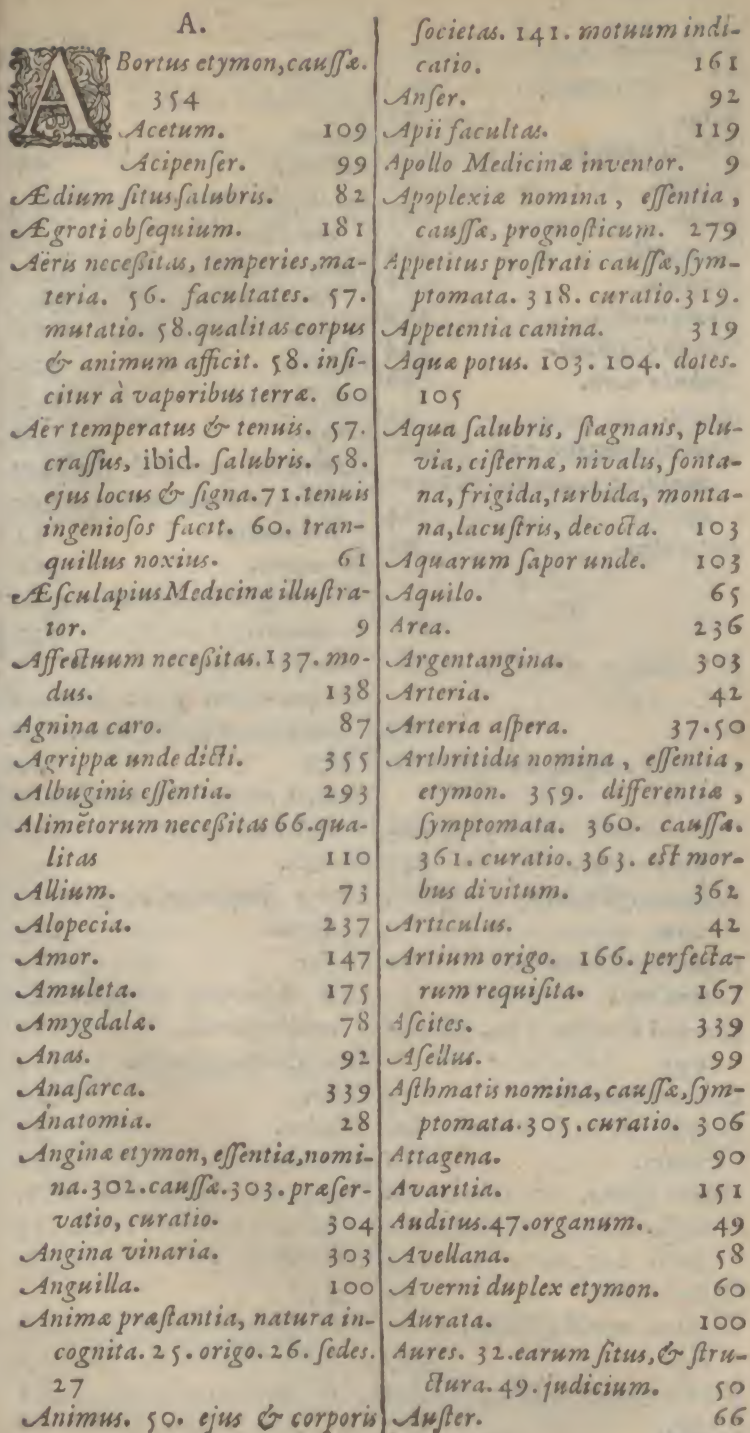 A.
ABortus etymon, cauſſæ.
354
Acetum. 109
Acipenſer. 99
Ædium ſitus ſalubris. 82
Ægroti obſequium. 181
Aëris neceßitas, temperies, ma-
teria. 56. facultates. 57.
mutatio. 58. qualitas corpus
& animum afficit. 58. infi-
citur à vaporibus terræ. 60
Aër temperatus & tenuis. 57.
craſſus, ibid. ſalubris. 58.
ejus locus & ſigna. 71. tenuis
ingenioſos facit. 60. tran-
quillus noxius. 61
Æſculapius Medicinæ illuſtra-
tor. 9
Affectuum neceßitas. 137. mo-
dus. 138
Agnina caro. 87
Agrippæ unde dicti. 355
Albuginis eſſentia. 293
Alimētorum neceßitas 66. qua-
litas 110
Allium. 73
Alopecia. 237
Amor. 147
Amuleta. 175
Amygdalæ. 78
Anas. 92
Anaſarca. 339
Anatomia. 28
Anginæ etymon, eſſentia, nomi-
na. 302. cauſſæ. 303. præſer-
vatio, curatio. 304
Angina vinaria. 303
Anguilla. 100
Animæ præſtantia, natura in-
cognita. 25. origo. 26. ſedes.
27
Animus. 50. ejus & corporis
ſocietas. 141. motuum indi-
catio. 161
Anſer. 92
Apii facultas. 119
Apollo Medicinæ inventor. 9
Apoplexiæ nomina, eſſentia,
cauſſæ, prognoſticum. 279
Appetitus proſtrati cauſſæ, ſym-
ptomata. 318. curatio. 319.
Appetentia canina. 319
Aquæ potus. 103. 104. dotes.
105
Aqua ſalubris, ſtagnans, plu-
via, ciſternæ, nivalis, fonta-
na, frigida, turbida, monta-
na, lacuſtris, decocta. 103
Aquarum ſapor unde. 103
Aquilo. 65
Area. 236
Argentangina. 303
Arteria. 42
Arteria aſpera. 37. 50
Arthritidis nomina, eſſentia,
etymon. 359. differentiæ,
ſymptomata. 360. cauſſæ.
361. curatio. 363. eſt mor-
bus divitum. 362
Articulus. 42
Artium origo. 166. perfecta-
rum requiſita. 167
Aſcites. 339
Aſellus. 99
Aſthmatis nomina, cauſſæ, ſym-
ptomata. 305. curatio. 306
Attagena. 90
Avaritia. 151
Auditus. 47. organum. 49
Avellana. 58
Averni duplex etymon. 60
Aurata. 100
Aures. 32. earum ſitus, & ſtru-
ctura. 49. judicium. 50
Auſter. 66